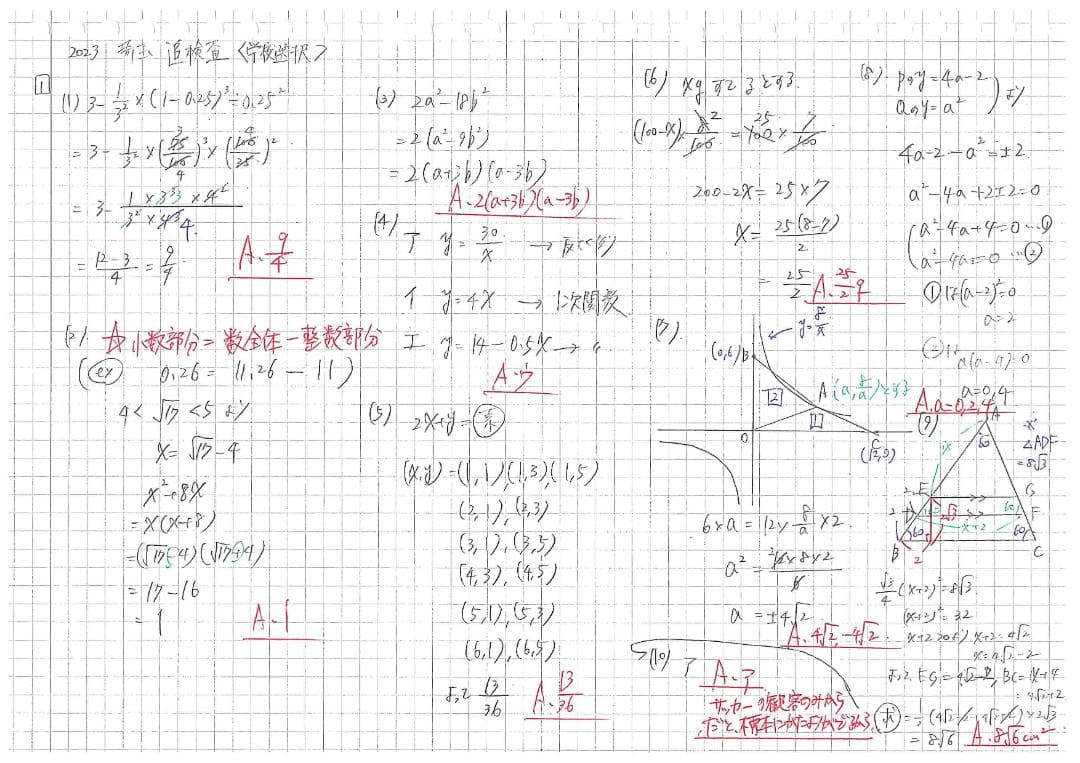 2023 埼玉 追検査〈学校選択〉
1
(1) 3 - 1/3² × (1 - 0.25)³ ÷ 0.25²
= 3 - 1/3² × (75/100)³ × (100/25)²
= 3 - 1 × 3³ × 4² / 3² × 4³
= 12 - 3 / 4 = 9/4
A. 9/4
(2) ☆ 小数部分 = 数全体 - 整数部分
(ex) 0.26 = 11.26 - 11)
4 < √17 < 5 より
x = √17 - 4
x² + 8x
= x(x+8)
= (√17 - 4)(√17 + 4)
= 17 - 16
= 1
A. 1
(3) 2a² - 18b²
= 2(a² - 9b²)
= 2(a+3b)(a-3b)
A. 2(a+3b)(a-3b)
(4)
ア y = 30/x → 反比例
イ y = 4x → 1次関数
エ y = 14 - 0.5x → 〃
A. ウ
(5) 2x+y = 素
(x,y) = (1,1)(1,3)(1,5)
(2,1),(2,3)
(3,1),(3,5)
(4,3),(4,5)
(5,1),(5,3)
(6,1),(6,5)
よって 13/36
A. 13/36
(6) xg すてるとする
(100-x) × 8/100 = 100 × 7/100
200 - 2x = 25 × 7
x = 25(8-7)/2
= 25/2
A. 25/2 g
(7)
y = 8/x
(0,6) B
A (a, 8/a) とする
2
1
O
C
(12,0)
6 × a = 12 × 8/a × 2
a² = 12 × 8 × 2 / 6
a = ±4√2
A. 4√2, -4√2
(8) Pのy = 4a - 2
Qのy = a²
より
4a - 2 - a² = ±2
a² - 4a + 2 ± 2 = 0
a² - 4a + 4 = 0 … ①
a² - 4a = 0 … ②
①は (a-2)² = 0
a = 2
②は a(a-4) = 0
a = 0, 4
A. a = 0, 2, 4
(9)
A
60
x
△ADF
= 8√3
E
G
D
F
2
2√3
x+2
60
B
C
2
√3/4 (x+2)² = 8√3
(x+2)² = 32
x+2>0より x+2 = 4√2
x = 4√2 - 2
よって EG = 4√2 - 2, BC = x+4
= 4√2+2
A. 8√6 cm²
= 8√6
(10) ア
A. ア
サッカーの観客のみから
だと、標本にかたよりがでるから。